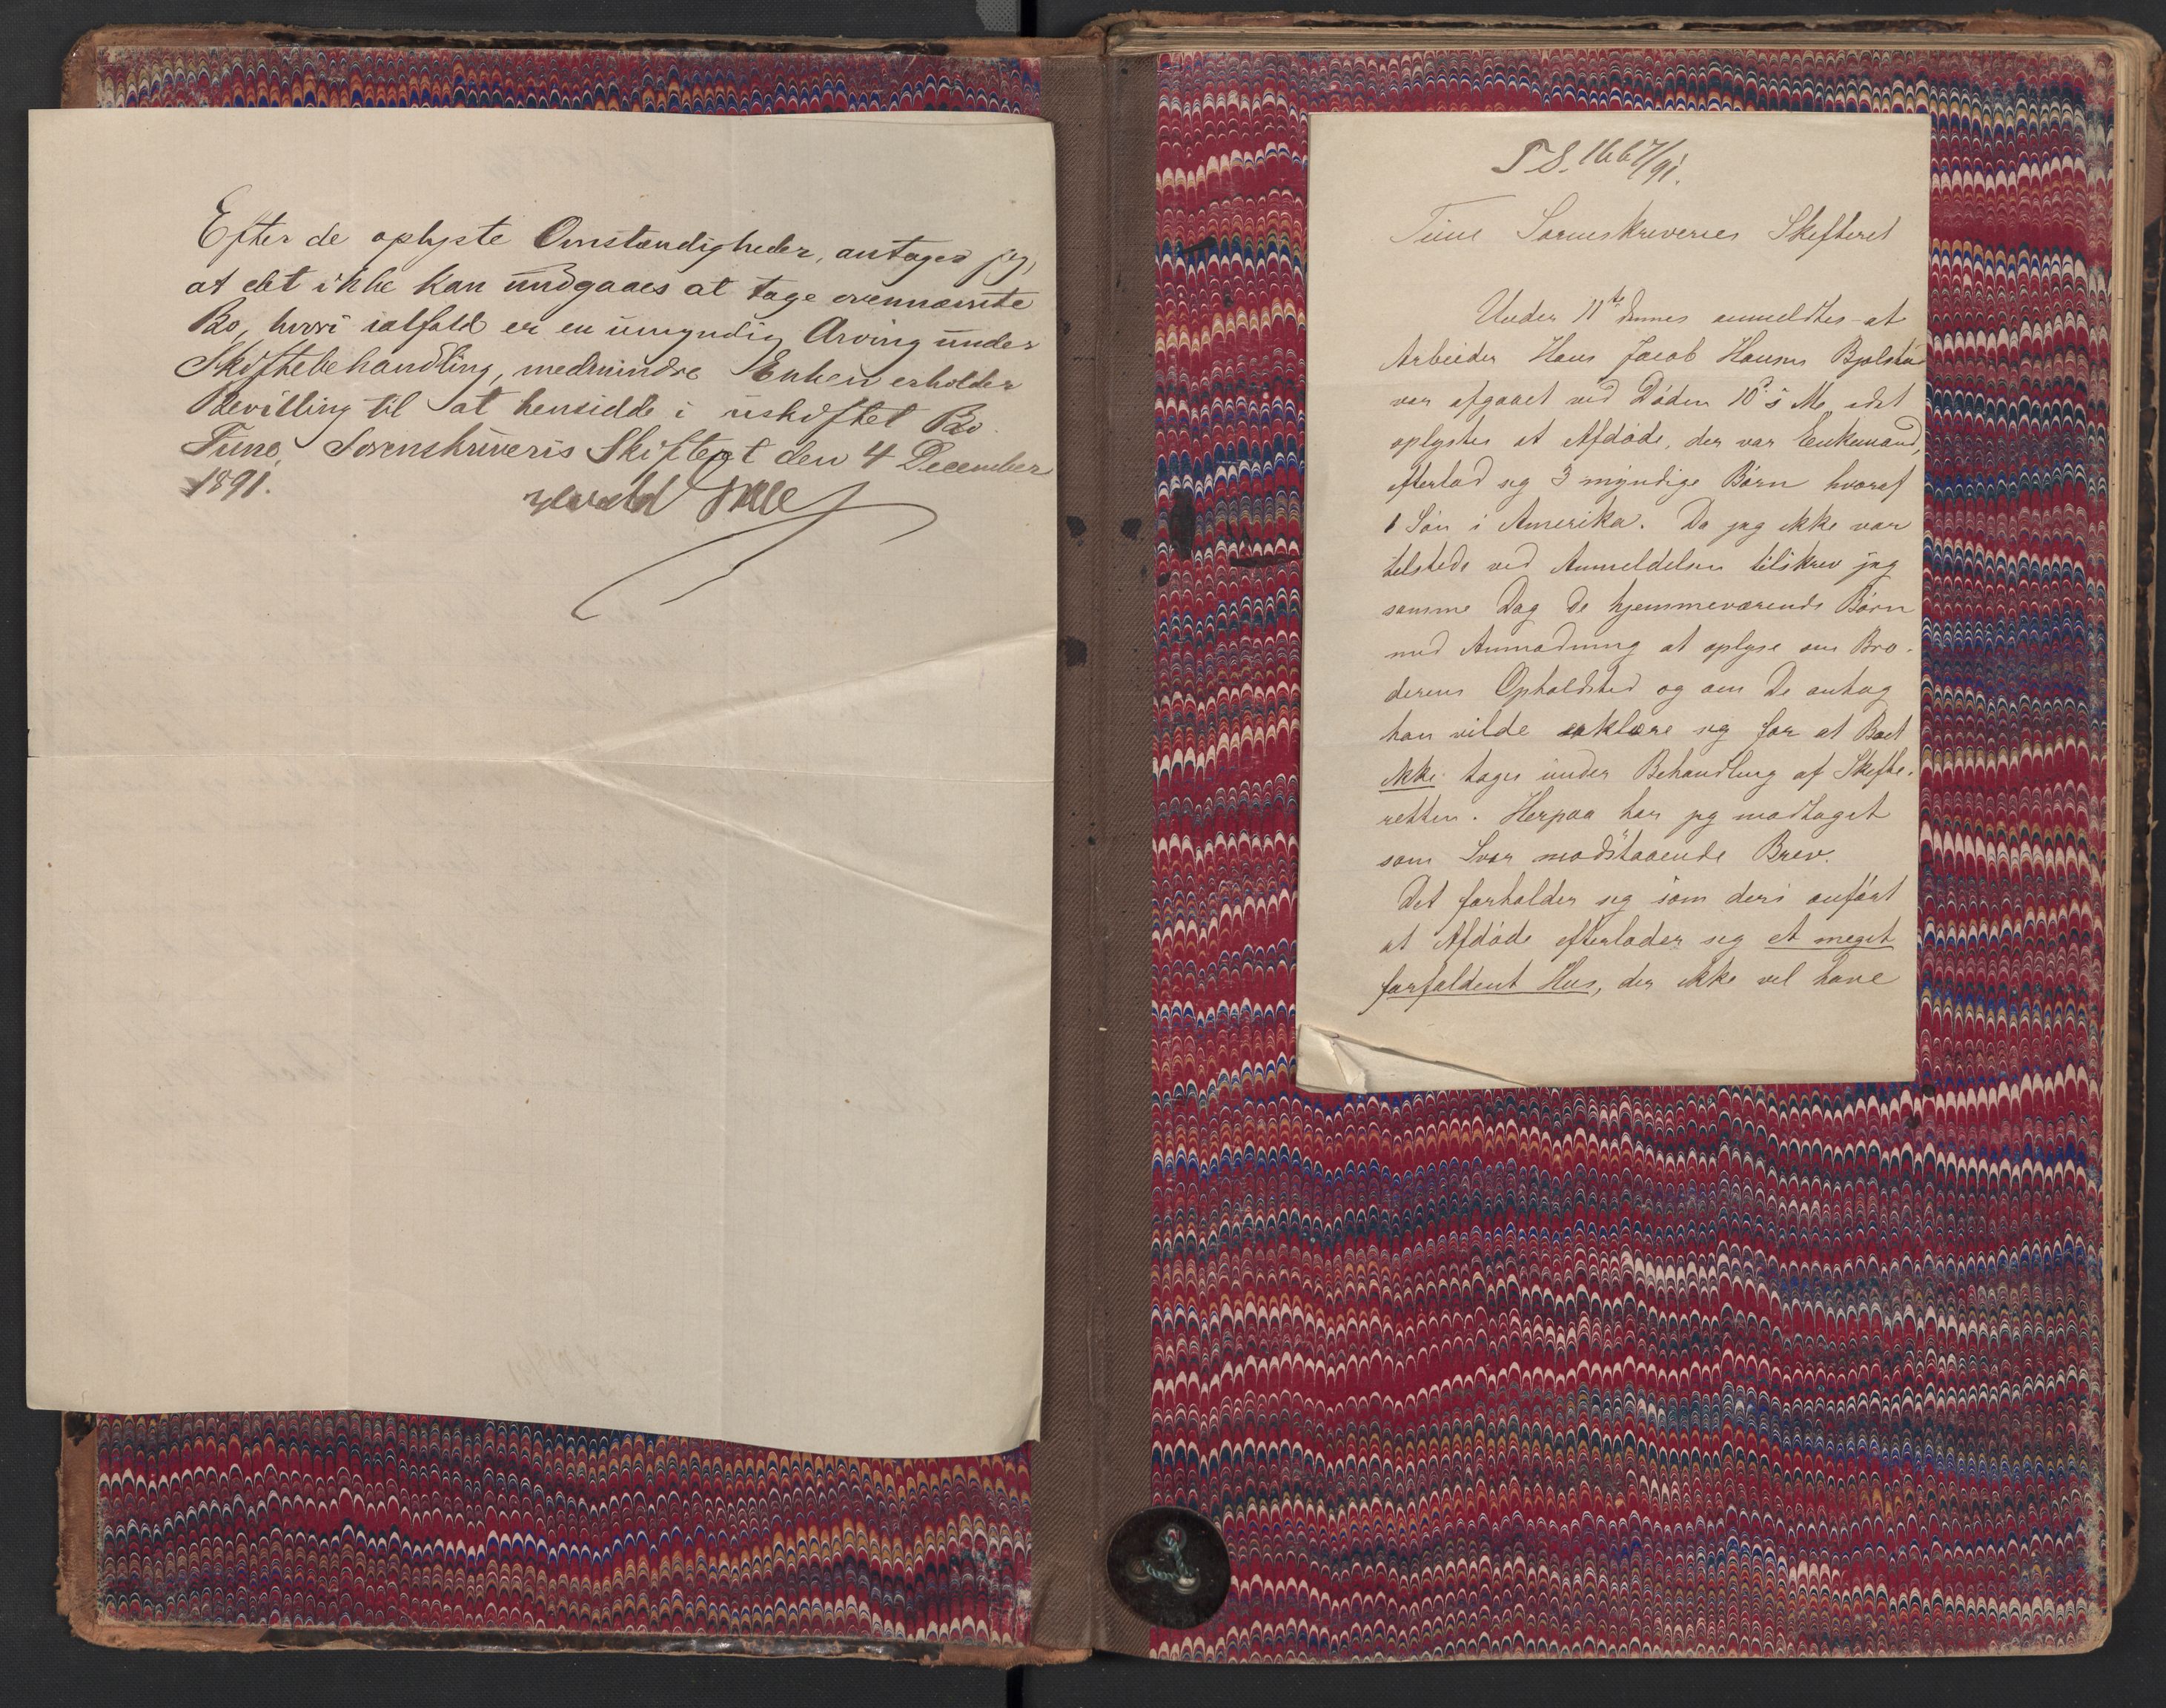 Efter de oplyste Omstændigheder, antages jeg,
at det ikke kan undgaaes at tage ovennævnte
Bo, hvori ialfald er en umyndig Arving under
Skiftebehandling, medmindre Enken erholder
Bevilling til at hensidde i uskiftet Bo.
Tune Sorenskriveris Skifteret den 4 December
1891.
T S. 1667/91.
Tune Sorenskriveries Skifteret
Under 11te dennes anmeldtes at
Arbeider Hans Jacob Hansen Bjolstad
var afgaaet ved Døden 10 s M, idet
oplystes at Afdøde, der var Enkemand,
efterlod sig 3 myndige Børn hvoraf
1 Søn i Amerika. Da jeg ikke var
tilstede ved Anmeldelsen tilskrev jeg
samme Dag de hjemmeværende Børn
med Anmodning at oplyse om Bro-
derens Opholdsted og om De antog
han vilde erklære sig for at Boet
ikke tages under Behandling af Skifte-
retten. Herpaa har jeg modtaget
som Svar modstaaende Brev.
Det forholder sig som deri anført
at Afdøde efterlader sig et meget
forfaldent Hus, der ikke vel have